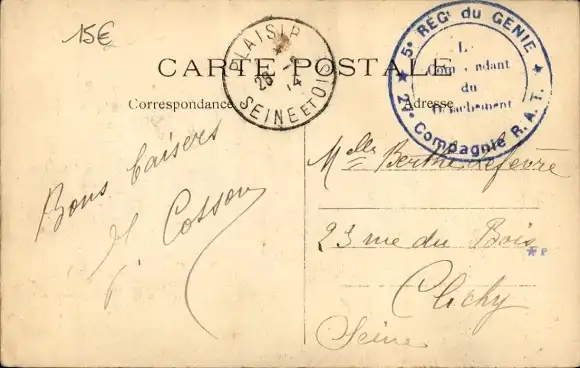 15€
PLAISIR
28
14
SEINE ET OISE
5e REGt du GENIE
Commandant
du
Détachement
27e Compagnie R.A.T.
CARTE POSTALE
Correspondance
Adresse
Bons baisers
Cosson
Melle Berthe Lefevre
23 rue du Bois
Clichy
Seine